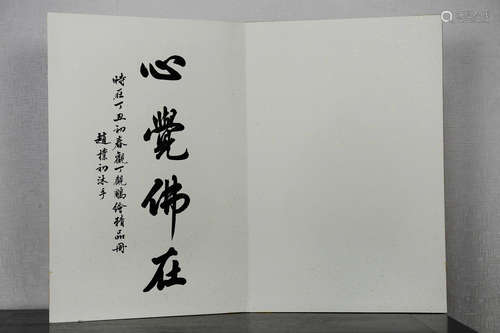 心覺佛在
時在丁丑初春觀丁觀鵬繪精品冊
趙樸初沐手